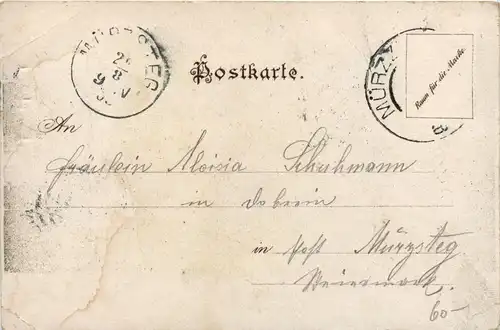 MÜRZSTEG
28
8
9 V
Postkarte.
MÜRZZ
Raum für die Marke.
An
Fräulein Aloisia Schuhmann
in Dobrein
in Post Mürzsteg
Steiermark.
60-